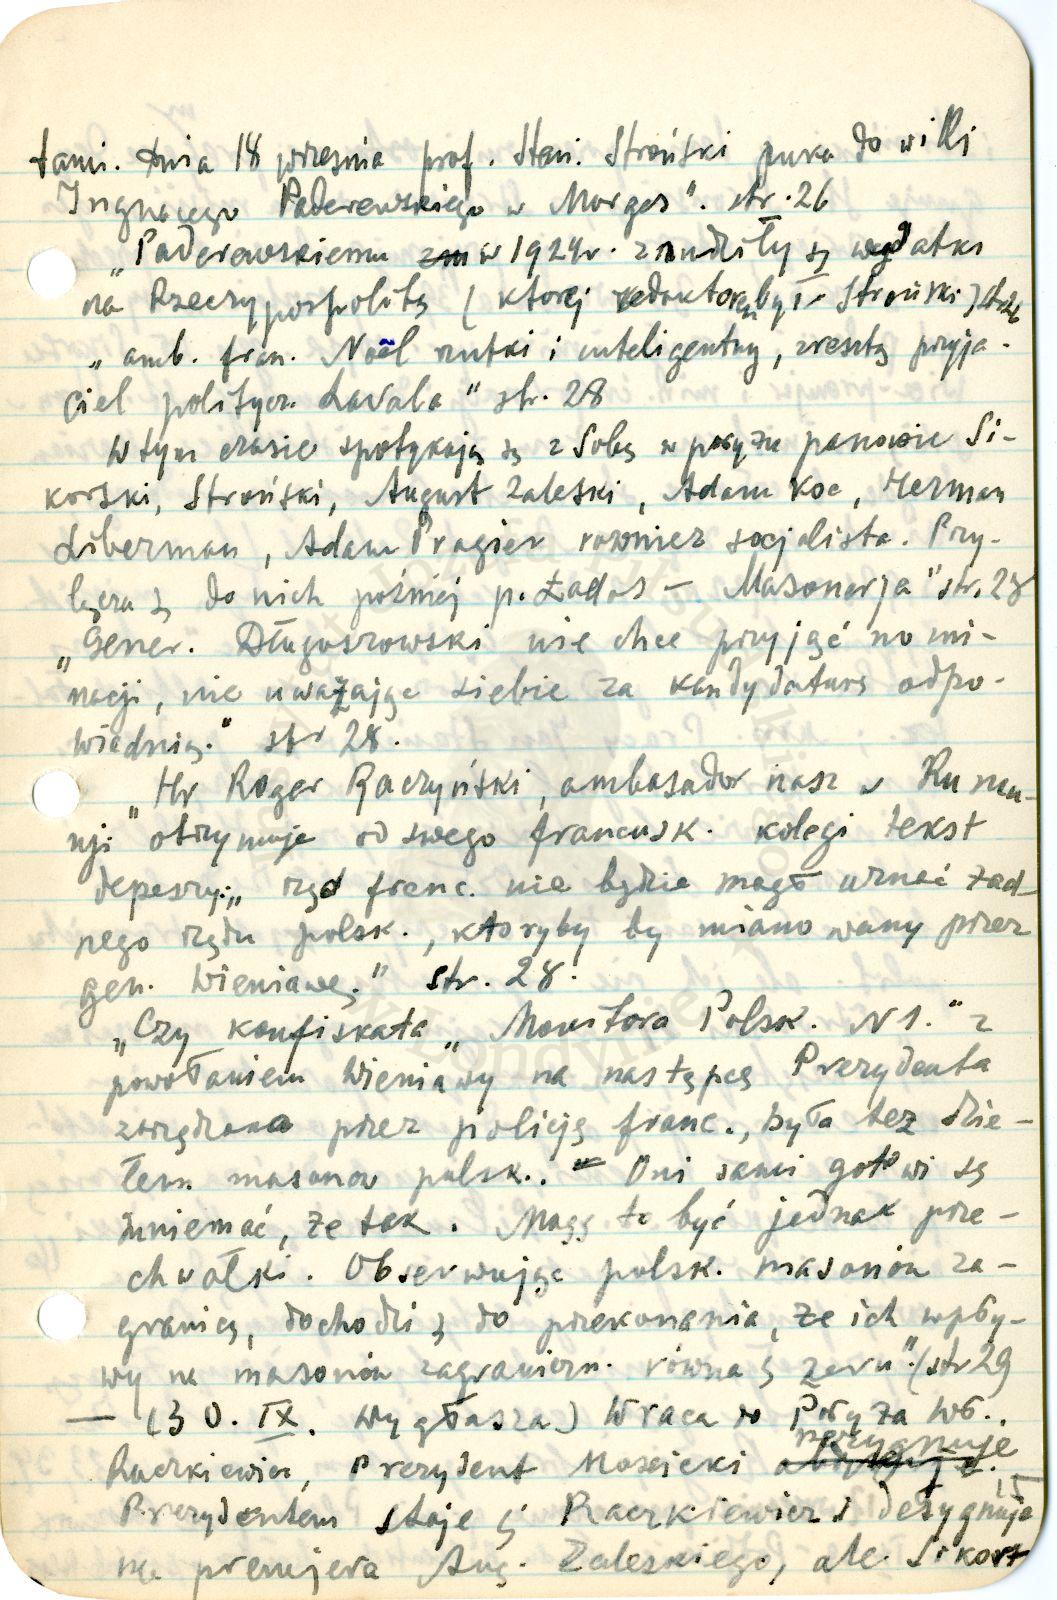 tami. Dnia 18 września prof. Stan. Stroński puka do willi
Ignacego Paderewskiego w Morges". str. 26
„Paderewskiemu w 1924 r. znudziły są wydatki
na Rzeczypospolitą (ktorej redaktorem był Stroński) str 26
„amb. fran. Noël rzutki i inteligentny, zresztą przyja-
ciel politycz. Lavala" str. 28
W tym czasie spotykają są z Sobą w paryżu panowie Si-
korski, Stroński, August Zaleski, Adam Koc, Herman
Liberman, Adam Pragier rownież socjalista. Przy-
łącza są do nich poźniej p. Ładoś – Masonerja" str. 28
„Gener. Długoszowski nie chce przyjąć nomi-
nacji, nie uważając siebie za kandydaturę odpo-
wiednią." str 28.
„Hr Roger Raczyński, ambasador nasz w Rumun-
nji" otrzymuje od swego francusk. kolegi tekst
depeszy: „rząd franc. nie będzie mógł uznać żad-
nego rządu polsk., ktoryby by mianowany przez
gen. Wieniawę." str. 28.
„Czy konfiskata „Monitora Polsk. N 1." z
powołaniem Wieniawy na następcę Prezydenta
zarządzona przez policję franc., była tez dzie-
łem masonow polsk.." Oni sami gotowi są
mniemać, że tak. Mogą to być jednak prze-
chwałki. Obserwując polsk. masonów za-
granicą, dochodzi są do przekonania, że ich wpły-
wy na masonów zagraniczn. równa są zeru". (str 29
— (30. IX. wygłasza) Wraca do Paryża Wł..
rezygnuje
Raczkiewicz, Prezydent Moscicki
15
Prezydentem staje są Raczkiewicz i desygnuje
na premjera Aug. Zaleskiego, ale Sikors